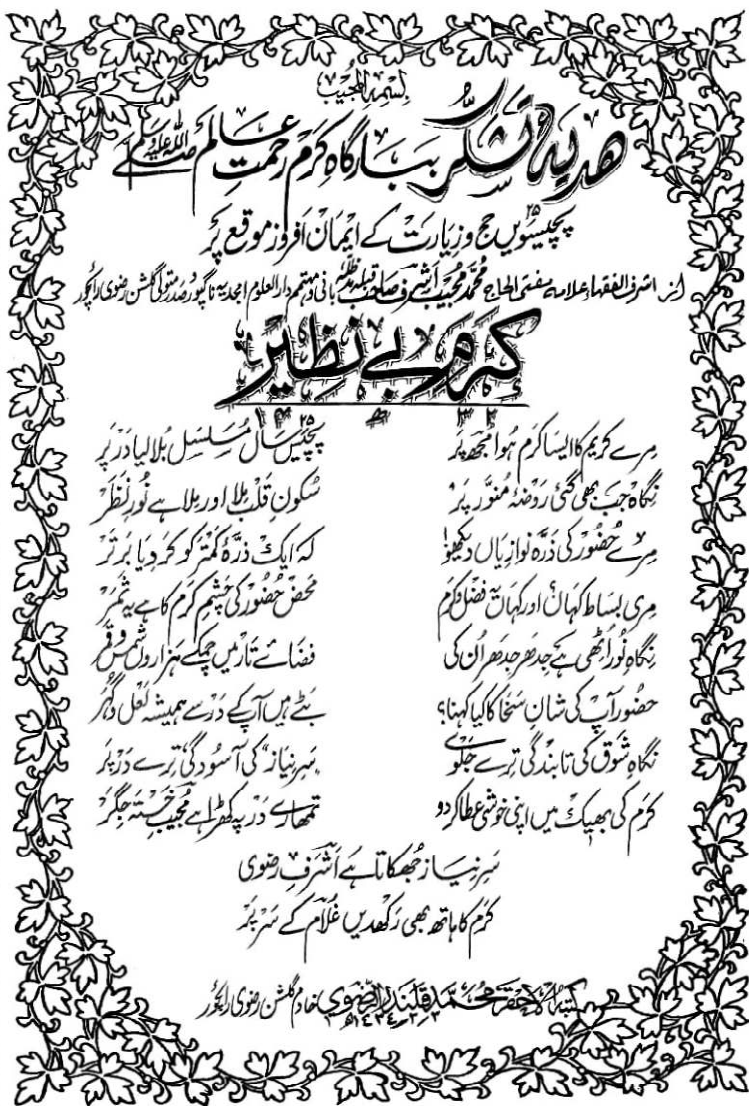 بسم المجیب
ھدیۂ تشکر ببارگاہِ کرم رحمتِ عالم صلی اللہ علیہ وسلم
پچیسویں ۲۵ حج و زیارت کے ایمان افروز موقع پر
از: اشرف الفقہاء علامہ مفتی الحاج محمد مجیب اشرف صاحب قبلہ مدظلہ بانی و مہتمم دارالعلوم امجدیہ ناگپور صدر متولی گلشن رضوی رائچور
کرمِ بے نظیر
مرے کریم کا ایسا کرم ہوا مجھ پر پچیس ۲۵ سال مسلسل بلا لیا در پر
نگاہ جب بھی گئی روضۂ منور پر سکونِ قلب ملا اور ملا ہے نورِ نظر
مرے حضور کی ذرہ نوازیاں دیکھو! کہ ایک ذرۂ کمتر کو کر دیا برتر
مری بساط کہاں اور کہاں یہ فضل و کرم محض حضور کی چشمِ کرم کا ہے یہ ثمر
نگاہِ نور اٹھی ہے جدھر جدھر ان کی فضائے تار میں چمکے ہزاروں شمس و قمر
حضور آپ کی شانِ سخا کا کیا کہنا؟ بٹے ہیں آپ کے در سے ہمیشہ لعل و گہر
نگاہِ شوق کی تابندگی ترے جلوے "سرِ نیاز" کی آسودگی ترے در پر
کرم کی بھیک میں اپنی خوشی عطا کر دو تمھارے در پہ کھڑا ہے مجیبِ خستہ جگر
سرِ نیاز جھکاتا ہے اشرفِ رضوی
کرم کا ہاتھ بھی رکھدیں غلام کے سر پر
کتبہ الاحقر محمد قلندر الرضوی خادم گلشن رضوی رائچور